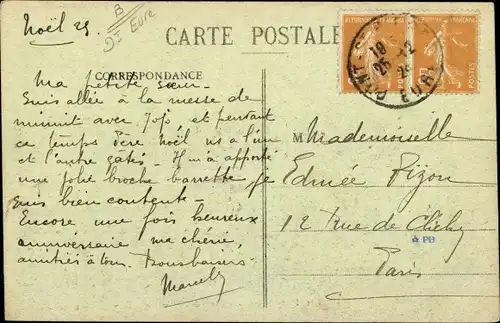 Noël 25.
B
DI Eure
CARTE POSTALE
CORRESPONDANCE
Ma petite sœur.
Suis allée à la messe de
minuit avec Jojo, et pendant
ce temps Père Noël vs à l'un
et l'autre gatés. Il m'a apporté
une jolie broche barrette je
suis bien contente.
Encore une fois heureux
anniversaire ma chérie,
amitiés à tous. Bons baisers
Marcelle
PONT-ST-
18
25-12
25
EURE
POSTES
Mademoiselle
Edmée Pizon
12 rue de Clichy
☆ PB
Paris